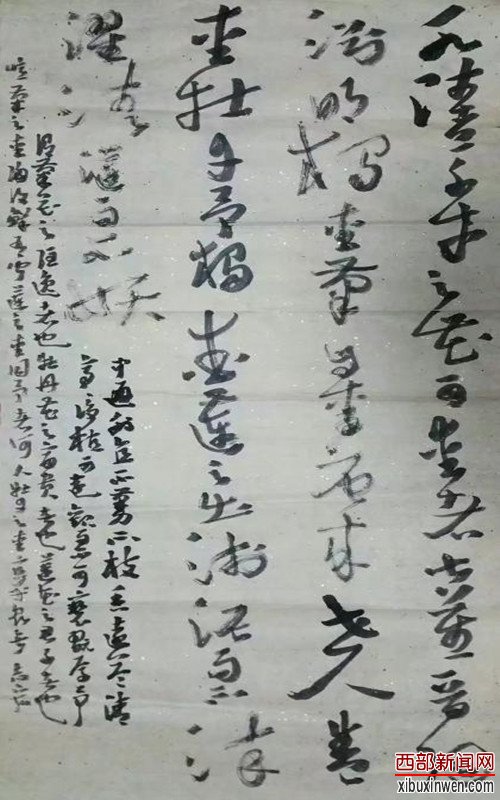 水陸草木之花可爱者甚蕃晋陶
渊明独爱菊自李唐来世人甚
爱牡丹予独爱莲之出淤泥而不染
濯清涟而不妖
中通外直不蔓不枝香远益清
亭净植可远观不可亵玩焉予
谓菊花之隐逸者也牡丹花之富贵者也莲花之君子者也
噫菊之爱陶后鲜有闻莲之爱同予者何人牡丹之爱宜乎众矣
西部新闻网
xibuxinwen.com